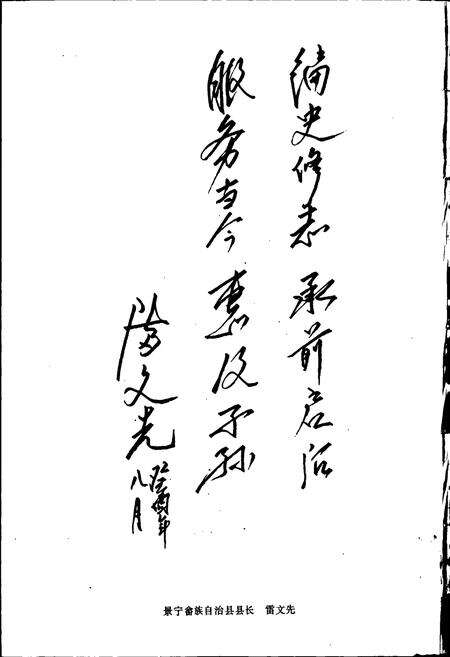 编史修志 承前启后
服务当今 惠及子孙
雷文先
癸酉年
八月
景宁畲族自治县县长 雷文先